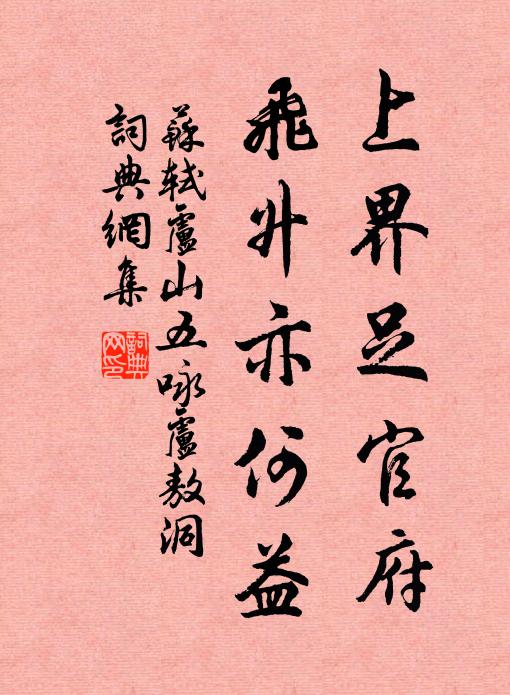 上界足官府
飛升亦何益
蘇軾廬山五咏廬敖洞
詞典網集
詞典網印